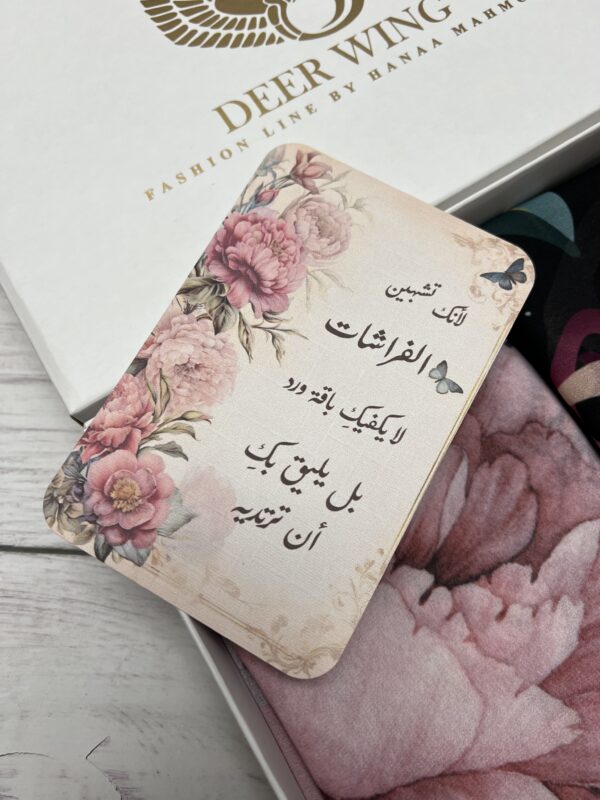 DEER WING
FASHION LINE BY HANAA
لأنك تشبهين
الفراشات
لا يكفيكِ باقة ورد
بل يليق بكِ
أن ترتديه